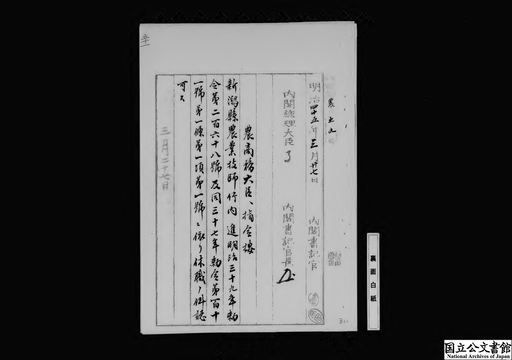 農土九
明治四十五年三月廿七日
内閣書記官
内閣總理大臣
内閣書記官長
農商務大臣ヘ指令案
新潟縣農業技師竹内進明治三十九年勅
令第二百六十八號及同三十七年勅令第百十
一號第一條第一項第一號ニ依リ休職ノ件認
可ス
三月二十七日
裏面白紙
国立公文書館
National Archives of Japan